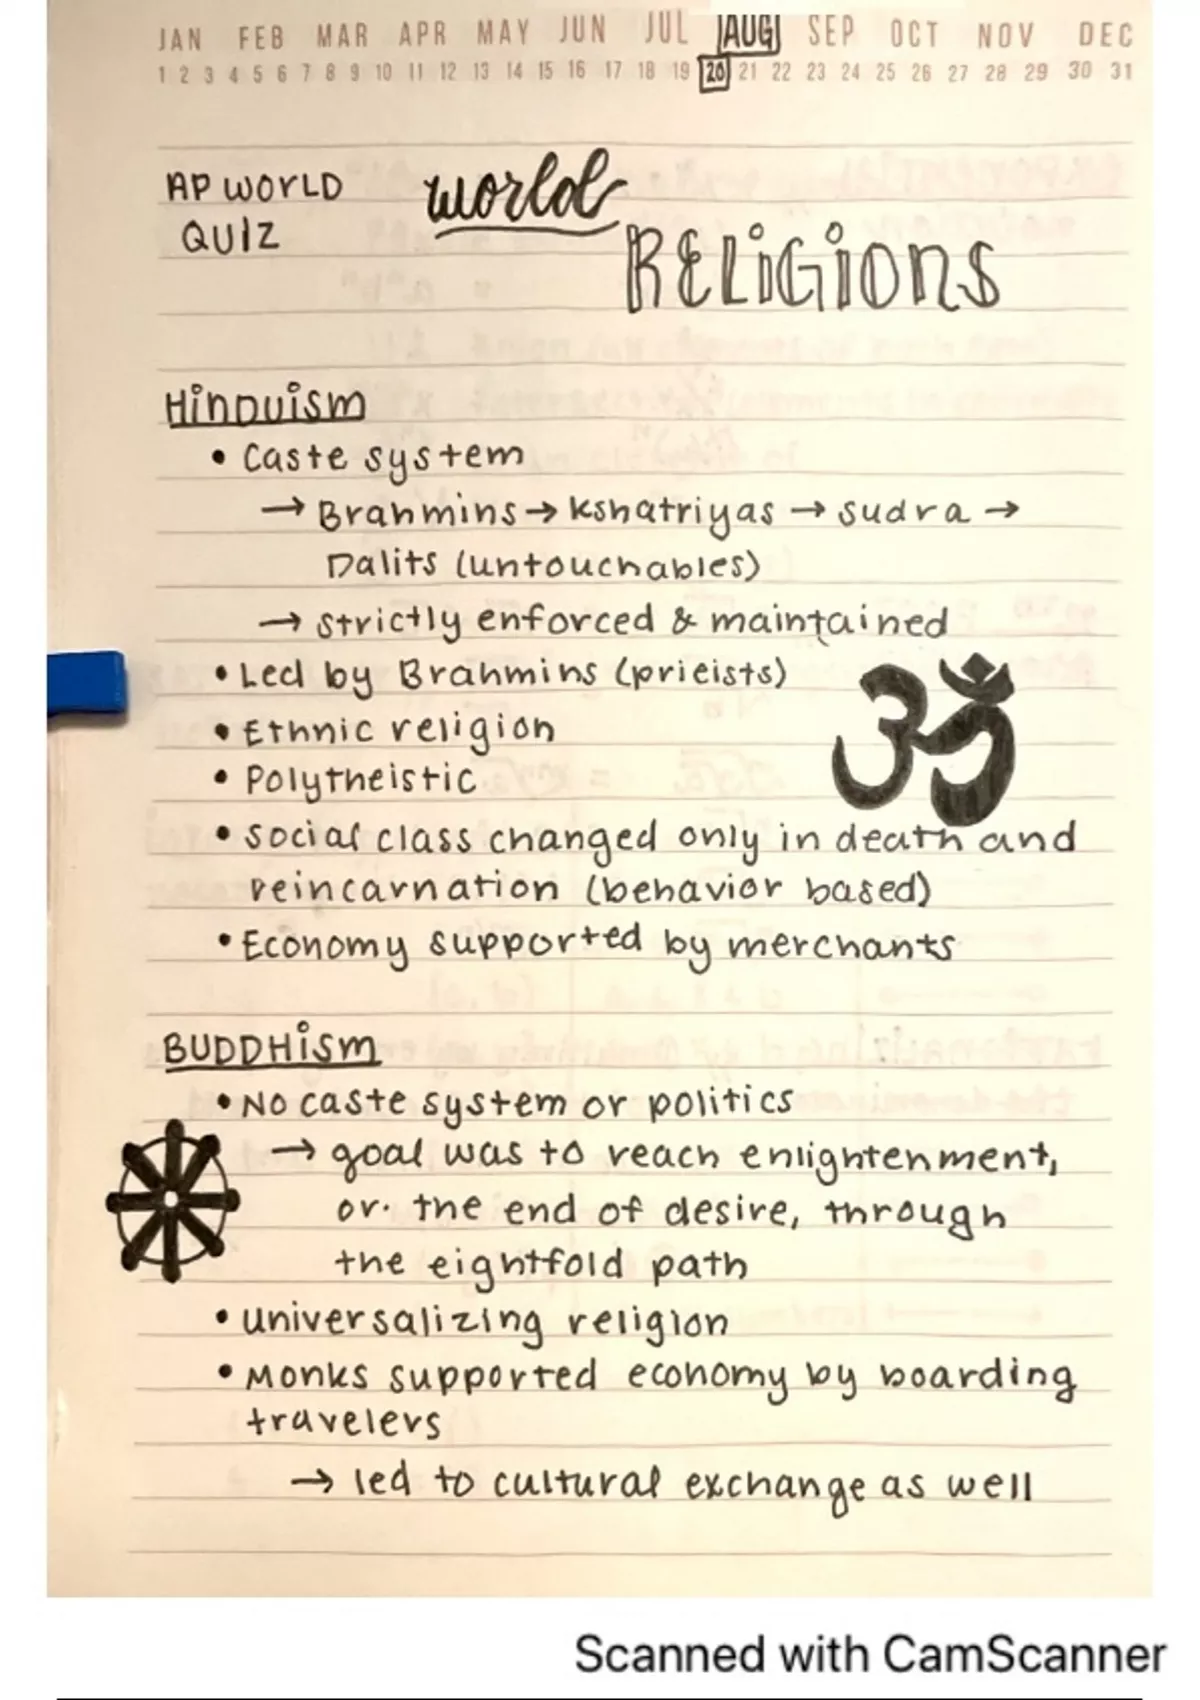 JAN FEB MAR APR MAY JUN JUL AUG SEP OCT NOV DEC
1 2 3 4 5 6 7 8 9 10 11 12 13 14 15 16 17 18 19 20 21 22 23 24 25 26 27 28 29 30 31
AP WORLD
QUIZ
world
RELIGIONS
HINDUISM
• Caste system
→ Brahmins → Kshatriyas → sudra →
Dalits (untouchables)
→ strictly enforced & maintained
• Led by Brahmins (prieists)
ॐ
• Ethnic religion
• Polytheistic
• social class changed only in death and
reincarnation (behavior based)
• Economy supported by merchants
BUDDHISM
• No caste system or politics
→ goal was to reach enlightenment,
or. the end of desire, through
the eightfold path
• universalizing religion
• Monks supported economy by boarding
travelers
→ led to cultural exchange as well
Scanned with CamScanner